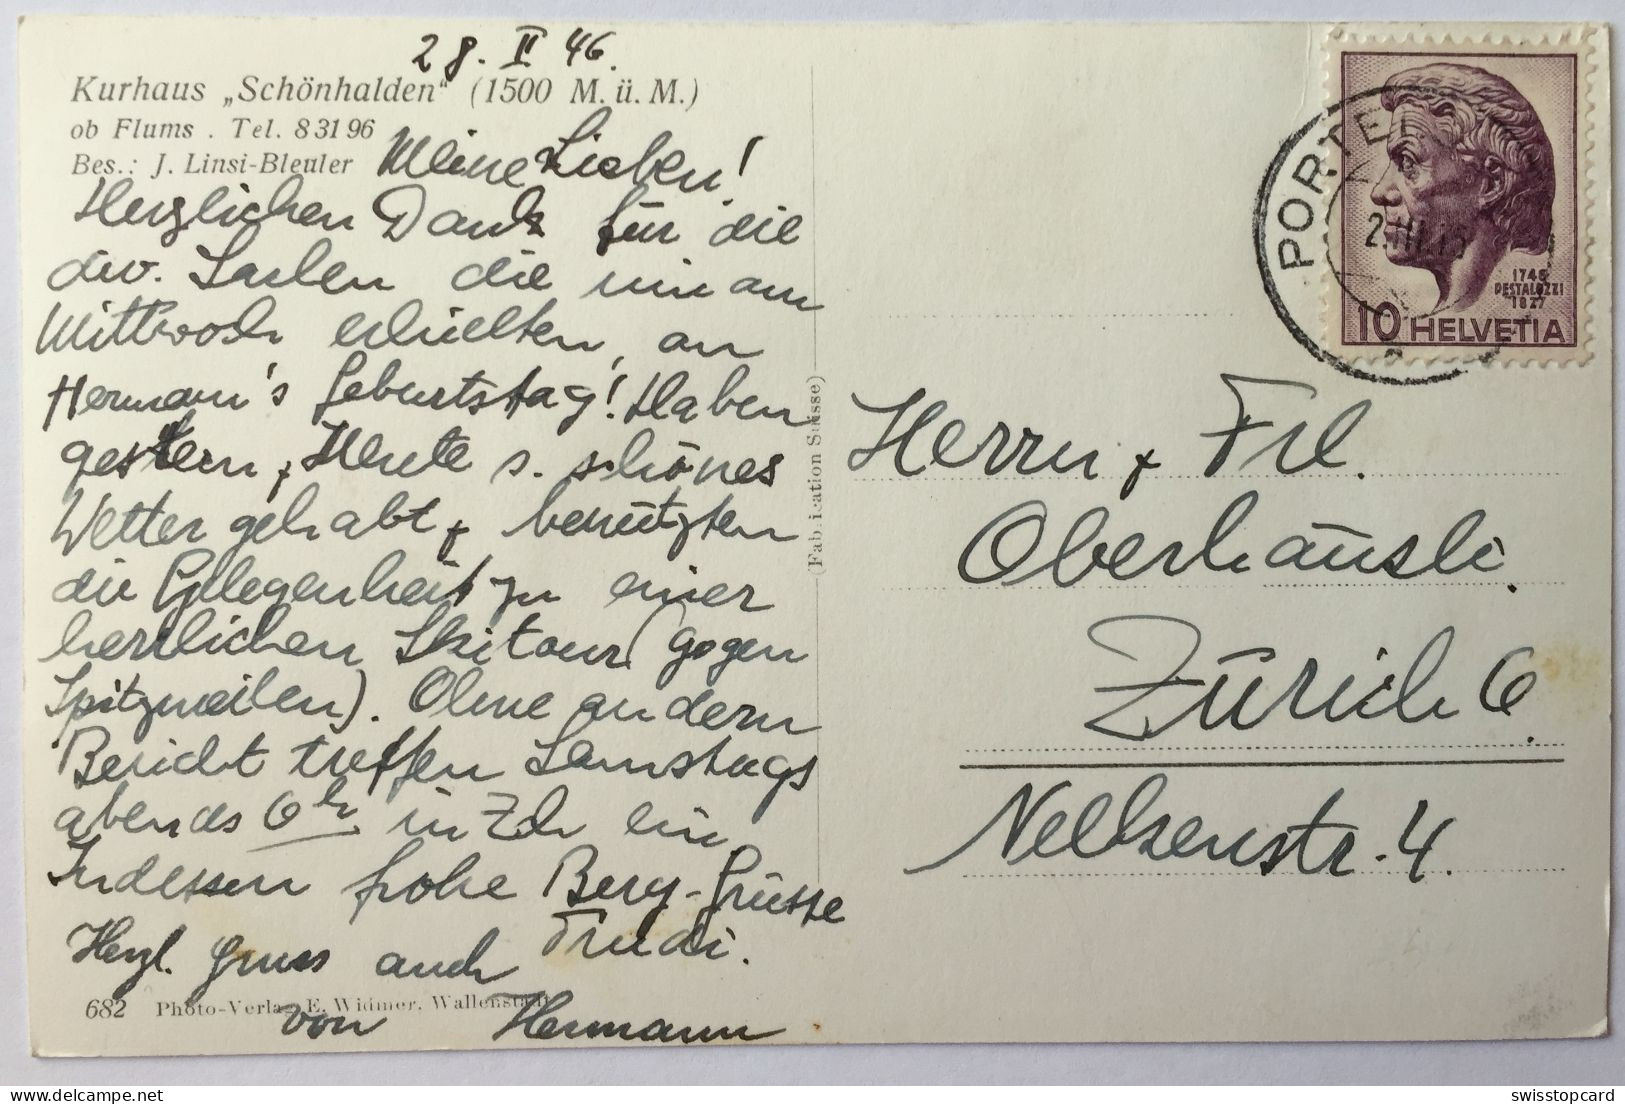 28. II 46.
Kurhaus „Schönhalden“ (1500 M. ü. M.)
ob Flums . Tel. 8 31 96
Bes.: J. Linsi-Bleuler
Meine Lieben!
Herzlichen Dank für die
div. Sachen die wir am
Mittwoch erhielten, an
Hermann's Geburtstag! Haben
gestern + Heute s. schönes
Wetter gehabt + benützten
die Gelegenheit zu einer
herrlichen Skitour (gegen
Spitzmeilen). Ohne andern
Bericht treffen Samstags
abends 6 h in Zch ein.
Indessen frohe Berg-Grüsse
Trudi.
Herzl. Gruss auch
von Hermann
682 Photo-Verlag E. Widmer, Wallenstadt
(Fabrication Suisse)
PORTEL
1746
PESTALOZZI
1827
10 HELVETIA
Herrn + Frl.
Oberhänsli.
Zürich 6.
Nelkenstr. 4.
swisstopcard